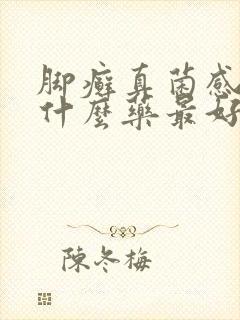 脚癣真菌感
什麼藥最好
陳冬梅